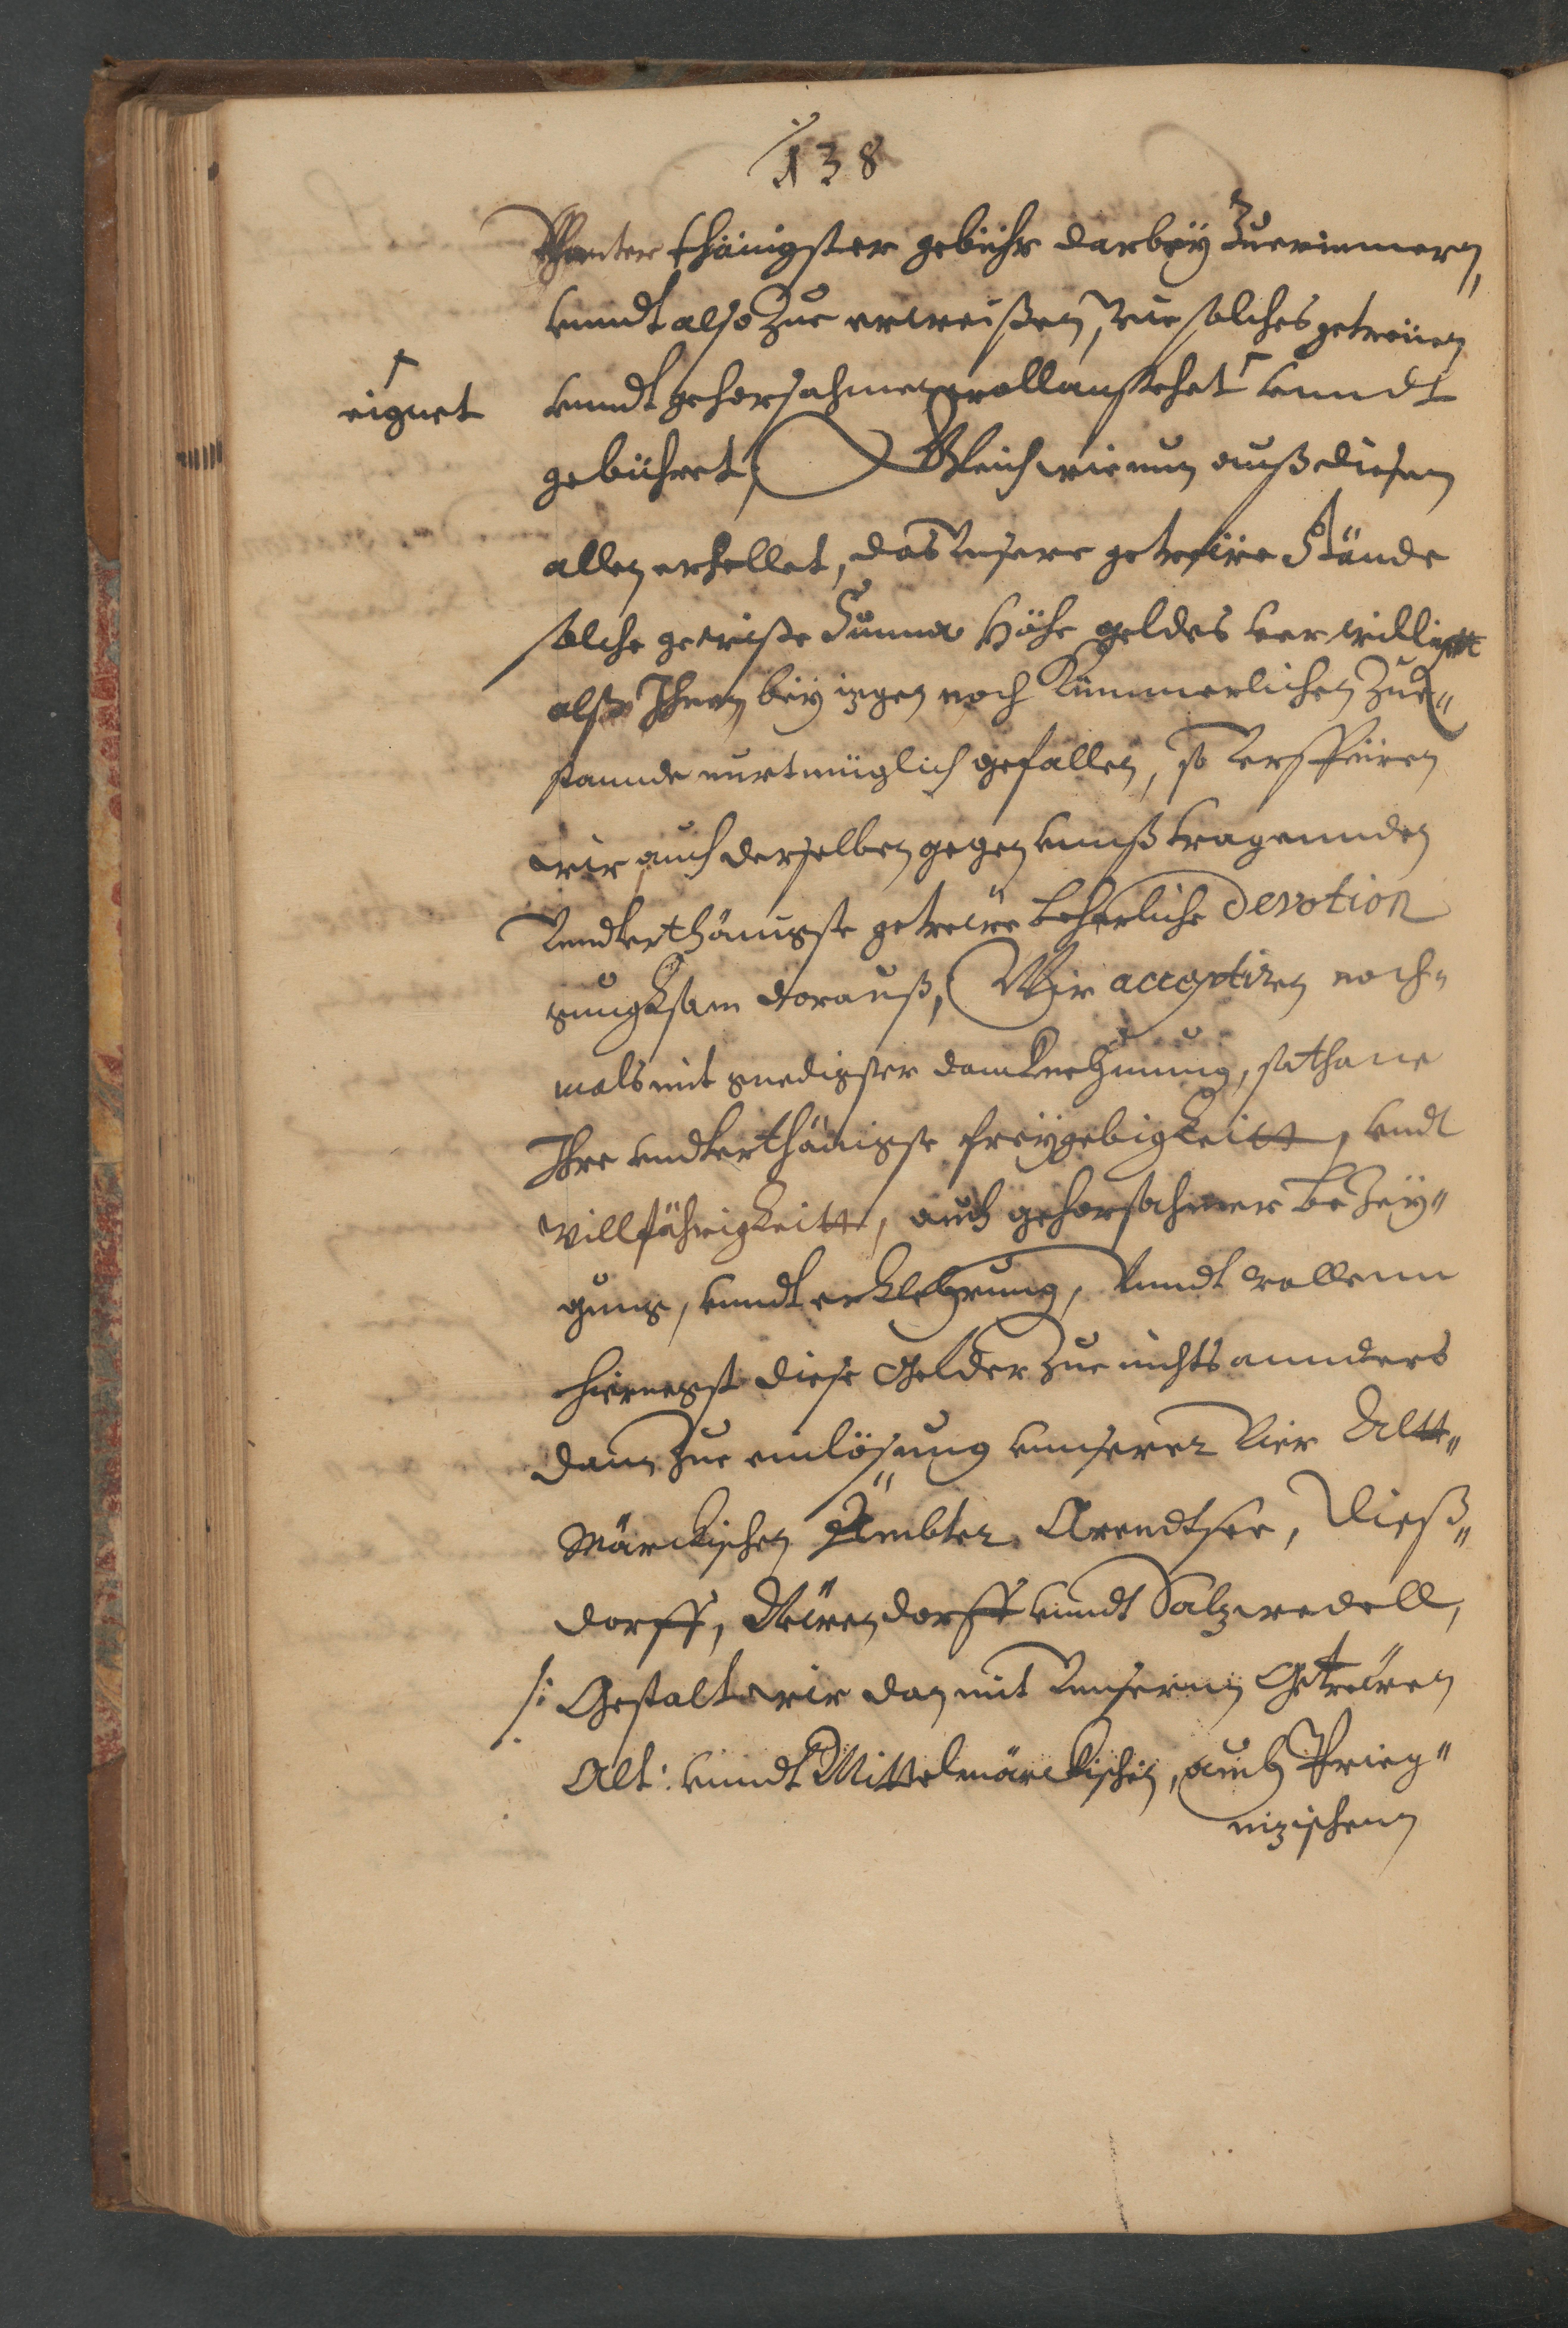 138
Vnterthänigster gebühr darbey zuerinnern,
vnndt also zue erweisen, wie solches getreüen
eignet
vnndt gehorsahmen woll anstehet vnndt
gebühret, Gleich wie nun auß diesem
allen erhellet, das Unsere getreüe Stände
solche gewisse Summa Höhe geldes verwilligtt
alß Ihnen bey izigen noch kümmerlichen Zue„
stannde nur müglich gefallen, so verspüren
wir auch derselben gegen vnnß tragennden
Vnndterthänigste getreüe beharliche Devotion
gnugksam darauß, Wir acceptiren noch„
mals mit gnedigster danknehmung, sothane
Ihre vndterthänigste freygebigkeitt, vndt
Willfährigkeitt, auch gehorsahmer bezey„
gung, vnndt erklehrung, Vnndt wollenn
hiernegst diese Gelder zue nichts annders
dann zue einlösung vnnserer Vier Altt„
Märckischen Ämbter, Arendtsee, Dieß„
dorff, Neüendorff vnndt Salzwedell,
/: Gestalt wir dan mit Unsernn Getreüen
Alt: vnndt Mittelmärckischen, auch Prieg„
nizischenn